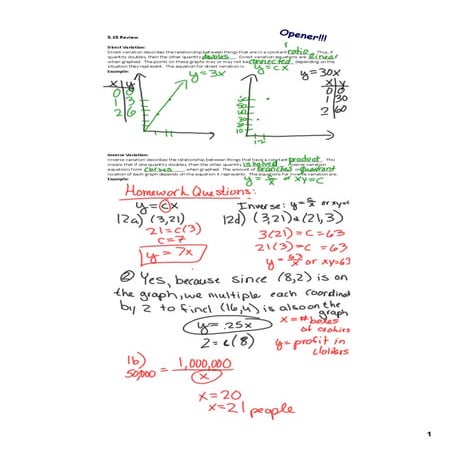 5.3B Review
Opener!!!
Direct Variation:
Direct variation describes the relationship between things that are in a constant ratio. Thus, if
quantity doubles, then the other quantity doubles. Direct variation equations are linear
when graphed. The points on these graphs may or may not be connected, depending on the
situation they represent. The equation for direct variation is: y = cx
Example:
y = 3x
x y
0 0
1 3
2 6
y = 30x
x y
0 0
1 30
2 60
10
1 2
Inverse Variation:
Inverse variation describes the relationship between things that have a constant product. This
means that if one quantity doubles, then the other quantity is halved. Inverse variation
equations form curves when graphed. The amount of branches or quadrant
location of each graph depends on the equation it represents. The equations for inverse variation are:
Example:
y = c/x or xy = c
Homework Questions:
y = cx
Inverse: y = c/x or xy=c
12a) (3,21)
21 = c(3)
c = 7
y = 7x
12d) (3,21) & (21,3)
3(21) = C = 63
21(3) = C = 63
y = 63/x or xy=63
② Yes, because since (8,2) is on
the graph, we multiple each coordinat
by 2 to find (16,4) is also on the
graph
y = .25x
2 = c(8)
x = # boxes
of cookies
y = profit in
dollars
1b)
50,000 = 1,000,000
x
x = 20
x = 21 people
1